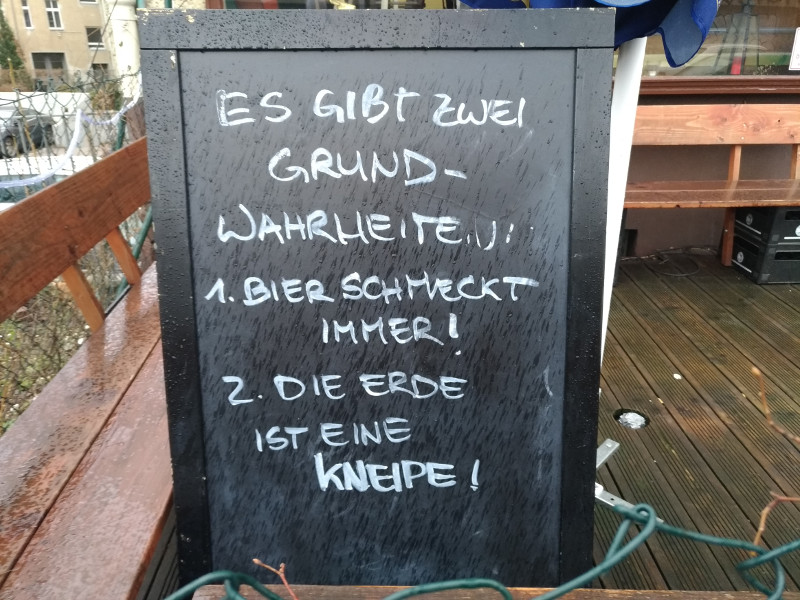 ES GIBT ZWEI
GRUND-
WAHRHEITEN:
1. BIER SCHMECKT
IMMER!
2. DIE ERDE
IST EINE
KNEIPE!